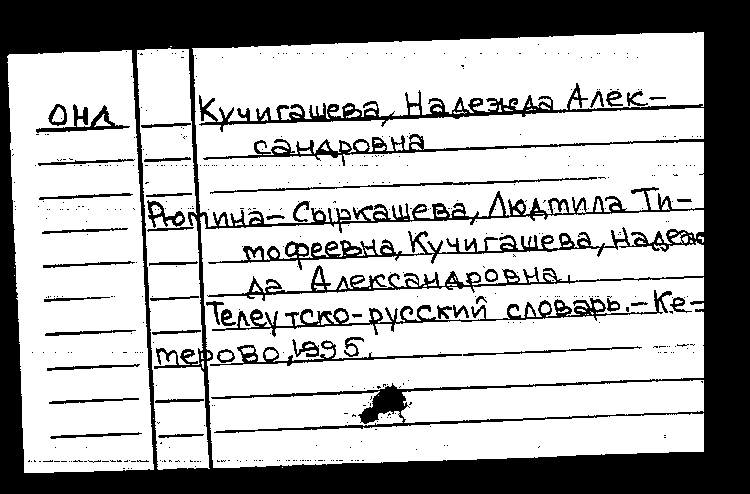 ОНЛ
Кучигашева, Надежда Алек-
сандровна
Рюмина-Сыркашева, Людмила Ти-
мофеевна, Кучигашева, Надеж
да Александровна.
Телеутско-русский словарь.-Ке-
мерово, 1995.